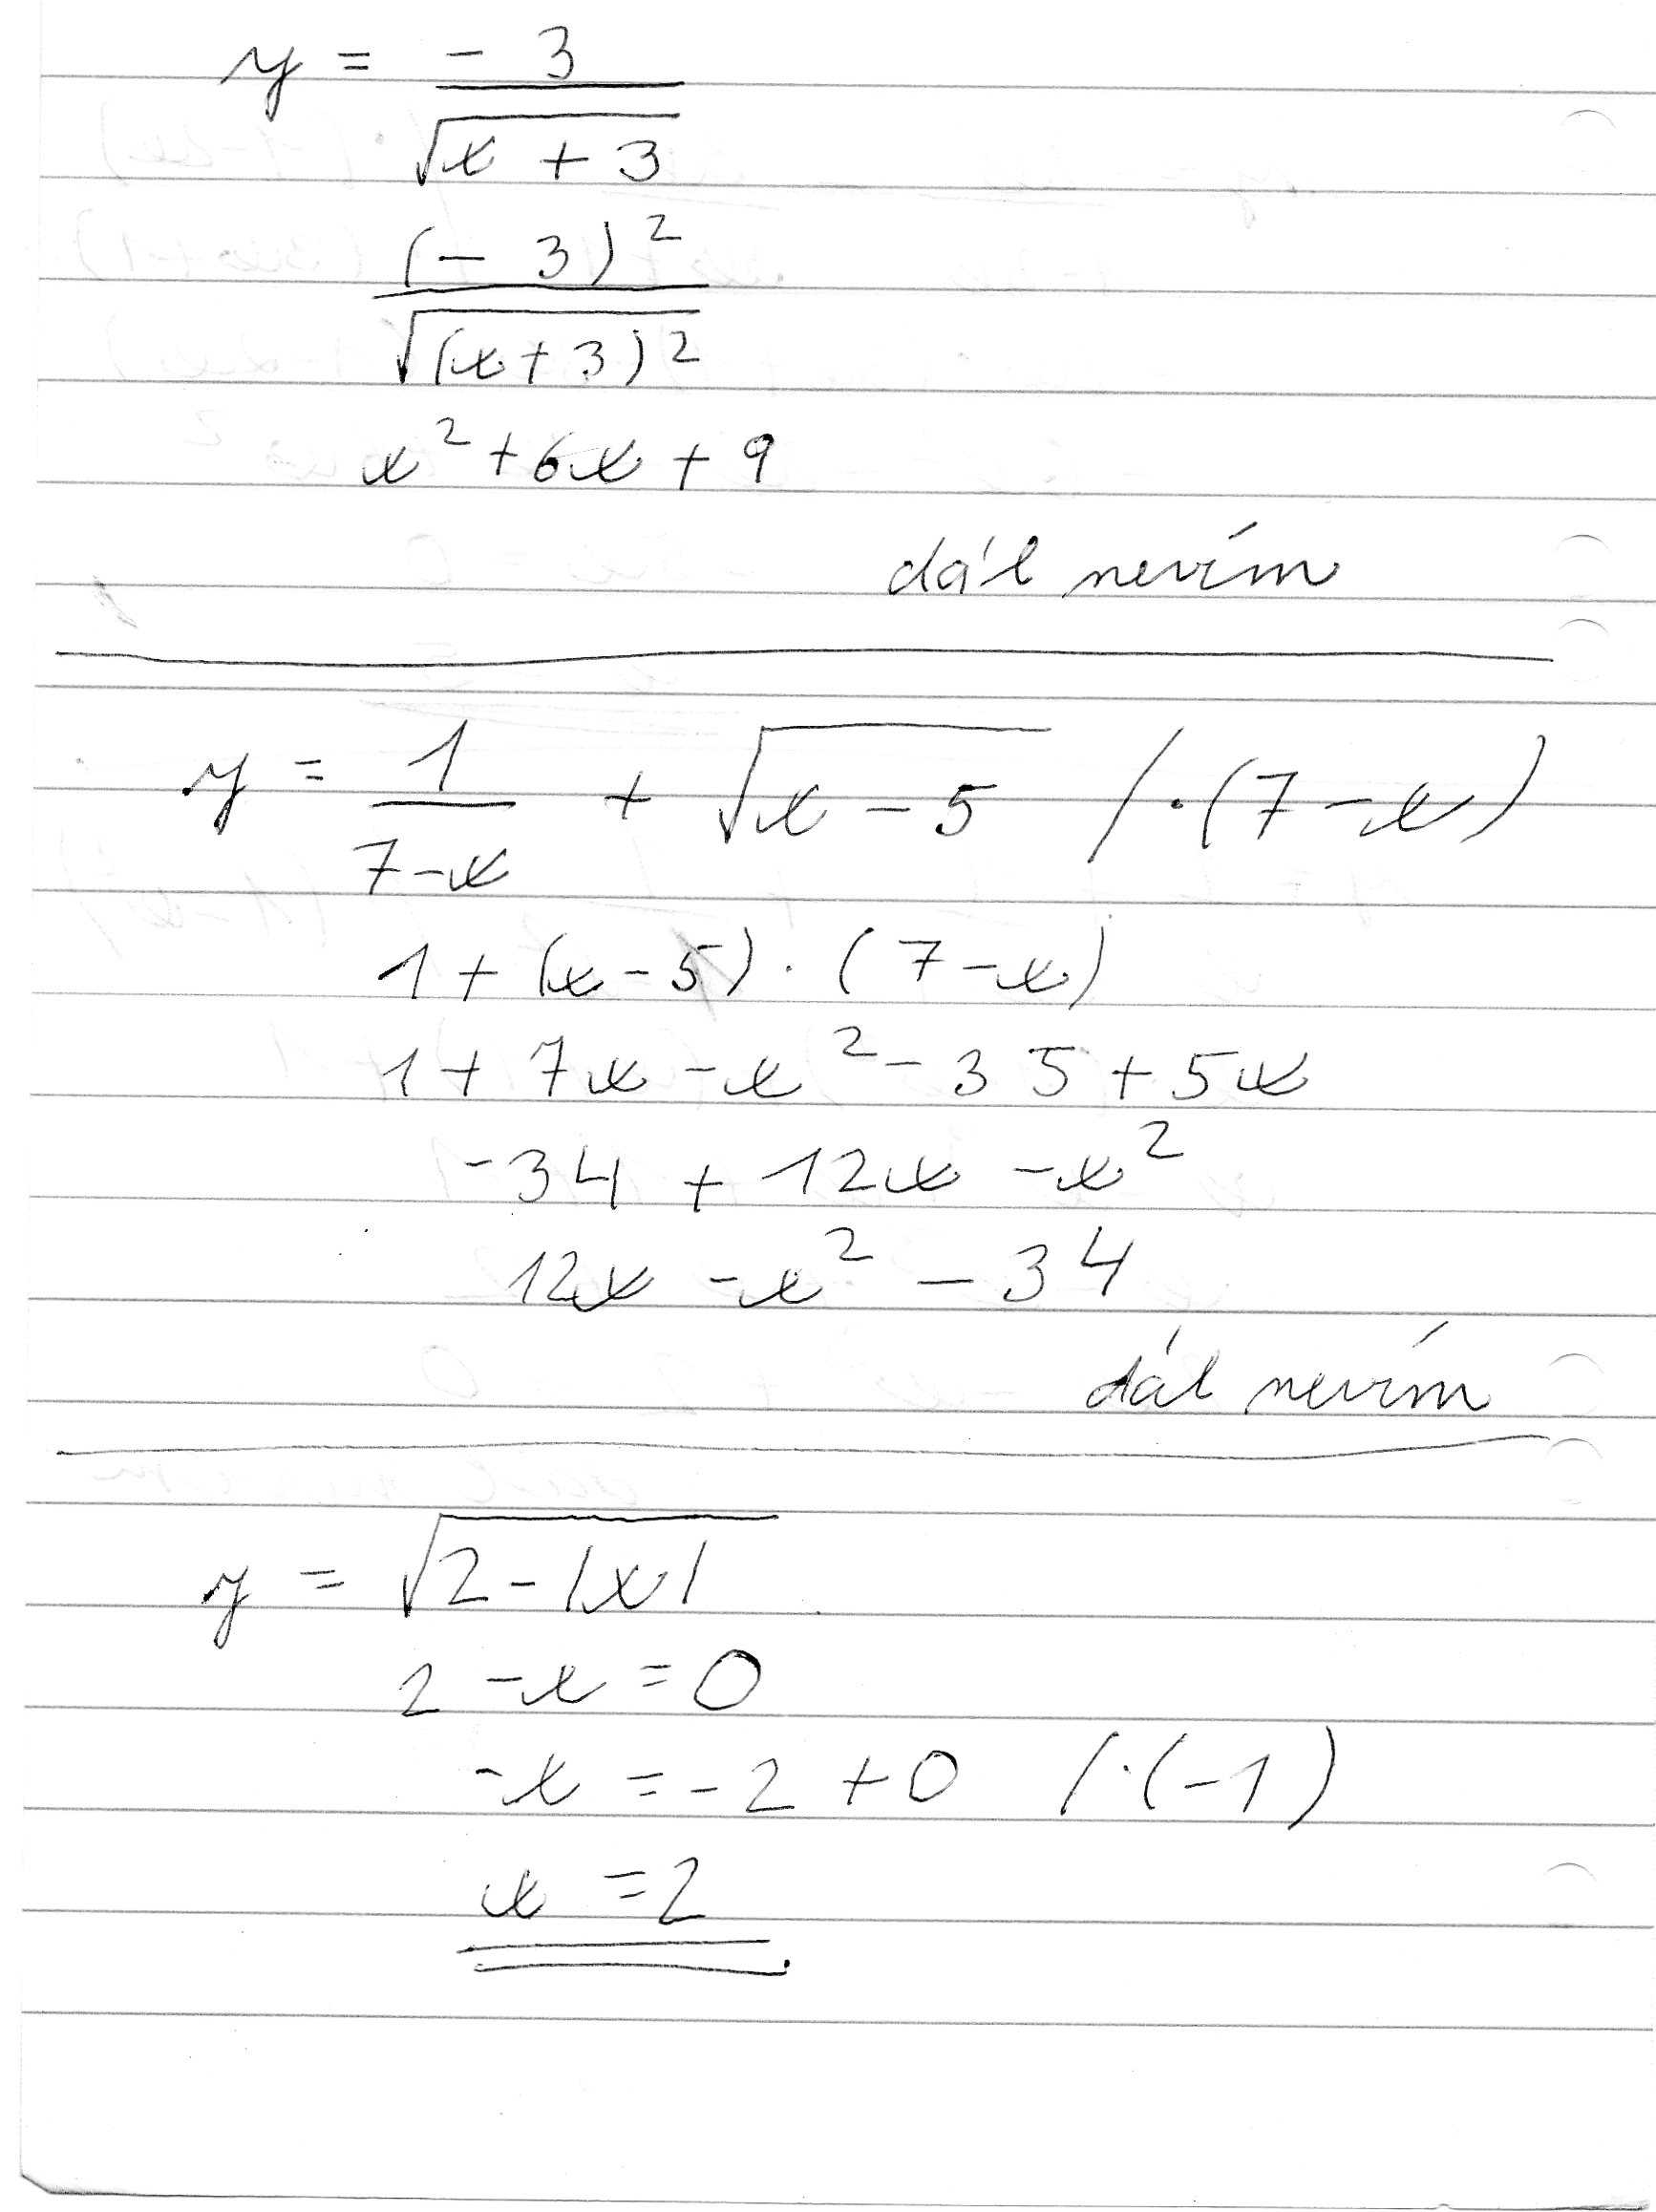 y = - 3
√x + 3
(- 3)²
√(x + 3)²
x² + 6x + 9
dál nevím
y = 1/(7-x) + √x - 5 / · (7 - x)
1 + (x - 5) · (7 - x)
1 + 7x - x² - 35 + 5x
-34 + 12x - x²
12x - x² - 34
dál nevím
y = √2 - |x|
2 - x = 0
-x = -2 + 0 / · (-1)
x = 2